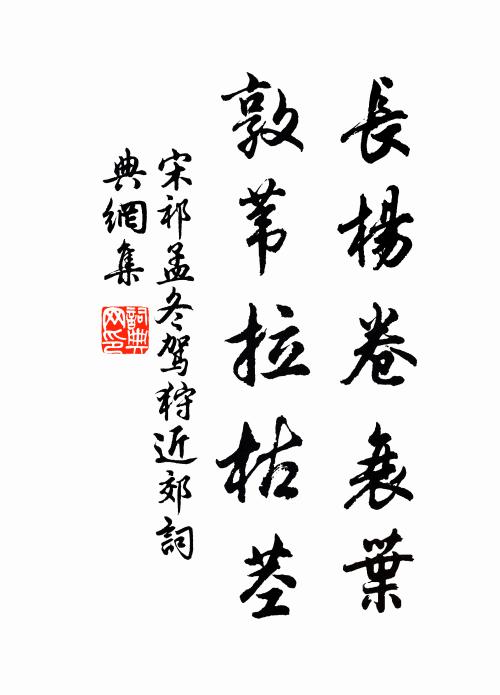 長楊卷衰葉
敦葦拉枯莖
宋祁孟冬駕狩近郊詞
典網集
詞典網印